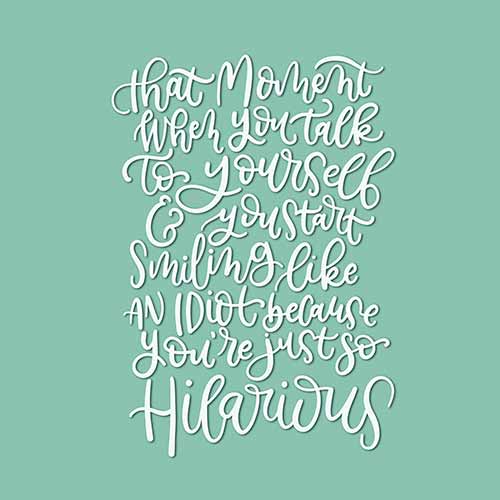 that Moment
when you talk
to yourself
& you start
Smiling like
AN IDiot because
you're just so
Hilarious